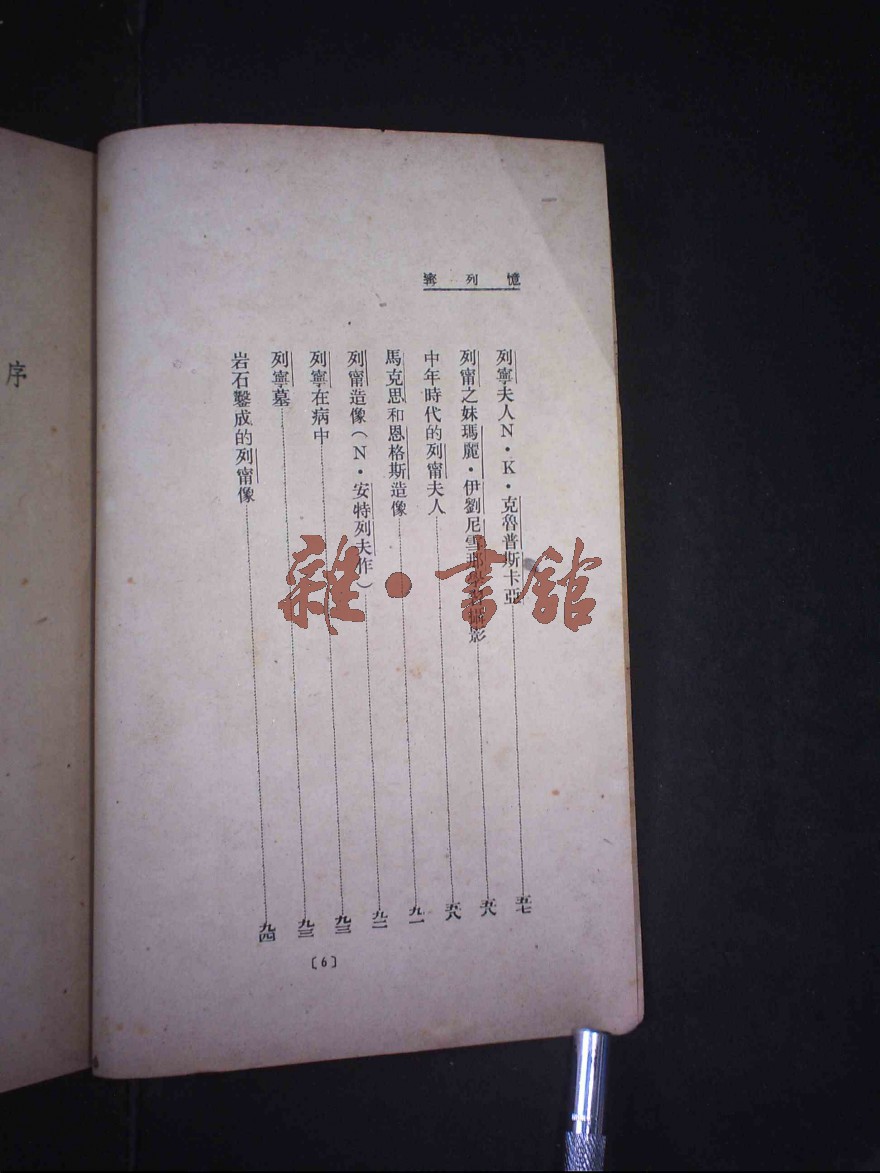 憶列寧
列寧夫人N·K·克魯普斯卡亞 五七
列甯之妹瑪麗·伊劉尼雪那 攝影 五八
中年時代的列甯夫人 五八
馬克思和恩格斯造像 九一
列甯造像(N·安特列夫作) 九二
列寧在病中 九三
列寧墓 九三
岩石鑿成的列甯像 九四
〔6〕
序
雜·書館